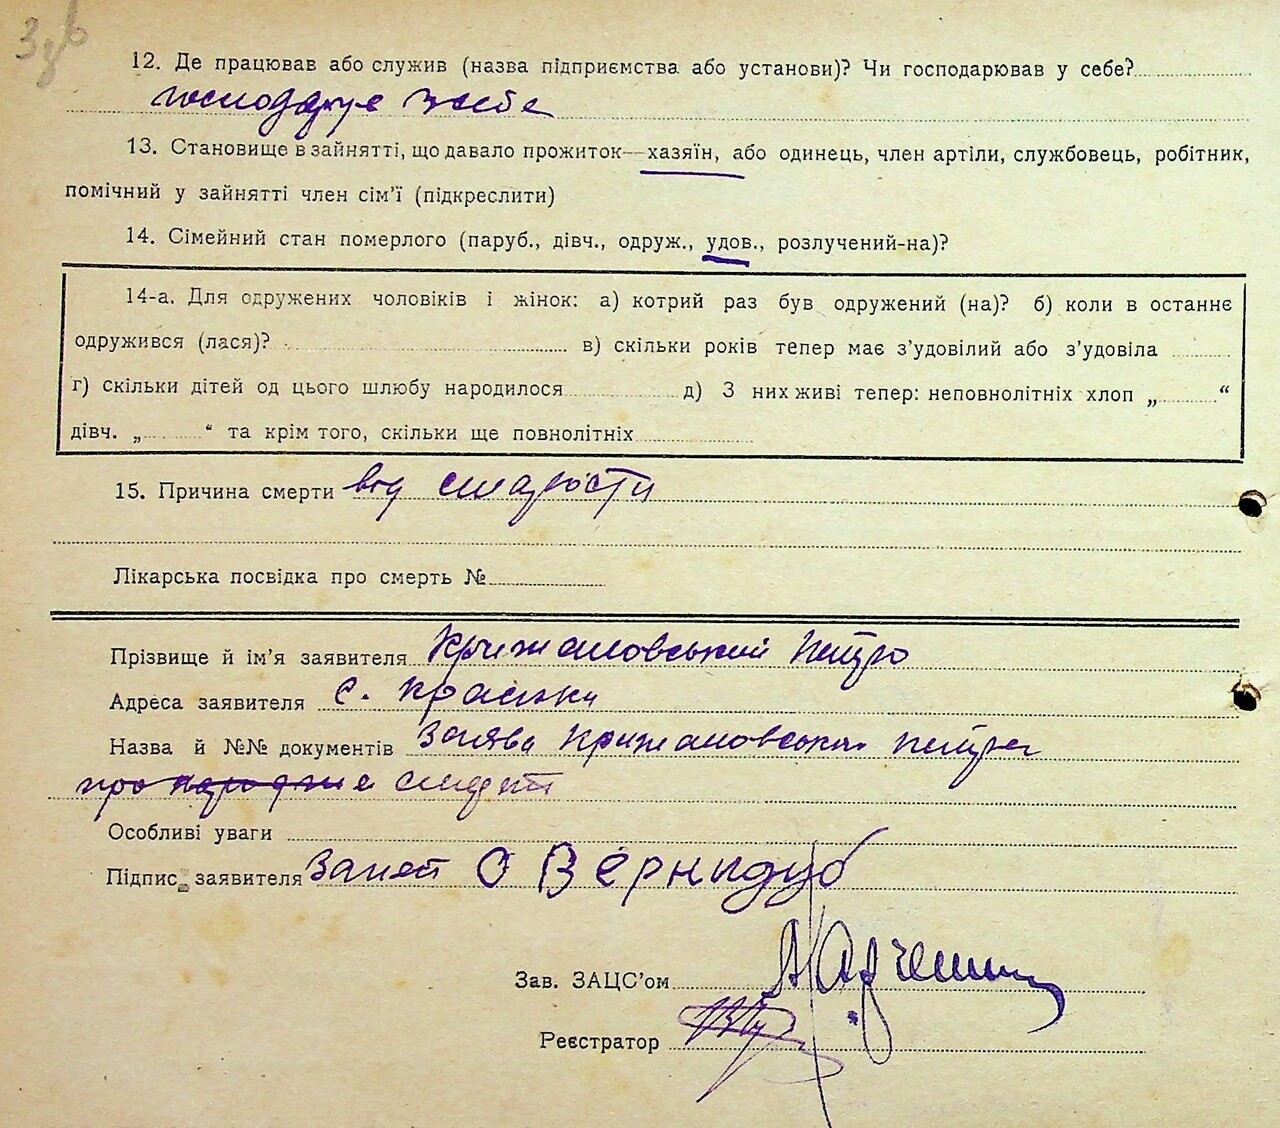 12. Де працював або служив (назва підприємства або установи)? Чи господарював у себе?
господарує в себе
13. Становище в зайнятті, що давало прожиток—хазяїн, або одинець, член артіли, службовець, робітник,
помічний у зайнятті член сім’ї (підкреслити)
14. Сімейний стан померлого (паруб., дівч., одруж., удов., розлучений-на)?
14-а. Для одружених чоловіків і жінок: а) котрий раз був одружений (на)? б) коли в останнє
одружився (лася)? в) скільки років тепер має з’удовілий або з’удовіла
г) скільки дітей од цього шлюбу народилося д) З них живі тепер: неповнолітніх хлоп „ “
дівч. „ “ та крім того, скільки ще повнолітніх
15. Причина смерти від старости
Лікарська посвідка про смерть №
Прізвище й ім’я заявителя Крижановський Петро
Адреса заявителя с.
Назва й №№ документів Заява Крижановського Петра
про смерть
Особливі уваги
Підпис заявителя О Вернидуб
Зав. ЗАЦС’ом
Реєстратор